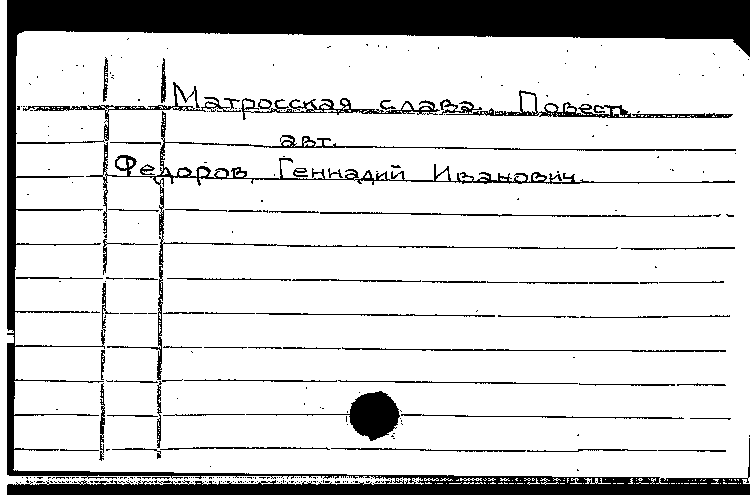 Матросская слава. Повесть.
авт.
Федоров, Геннадий Иванович.